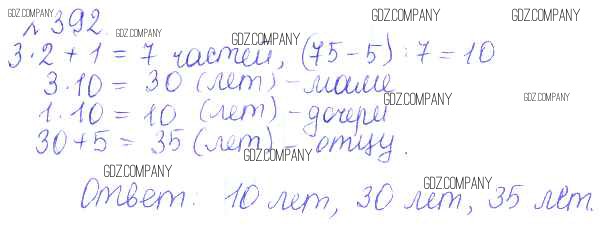 GDZ.COMPANY GDZ.COMPANY GDZ.COMPANY
№ 392. GDZ.COMPANY GDZ.COMPANY
3·2+1=7 частей, (75-5):7=10
3·10=30 (лет) - маме
GDZ.COMPANY GDZ.COMPANY
1·10=10 (лет) - дочери
30+5=35 (лет) - отцу.
GDZ.COMPANY
GDZ.COMPANY GDZ.COMPANY
Ответ: 10 лет, 30 лет, 35 лет.